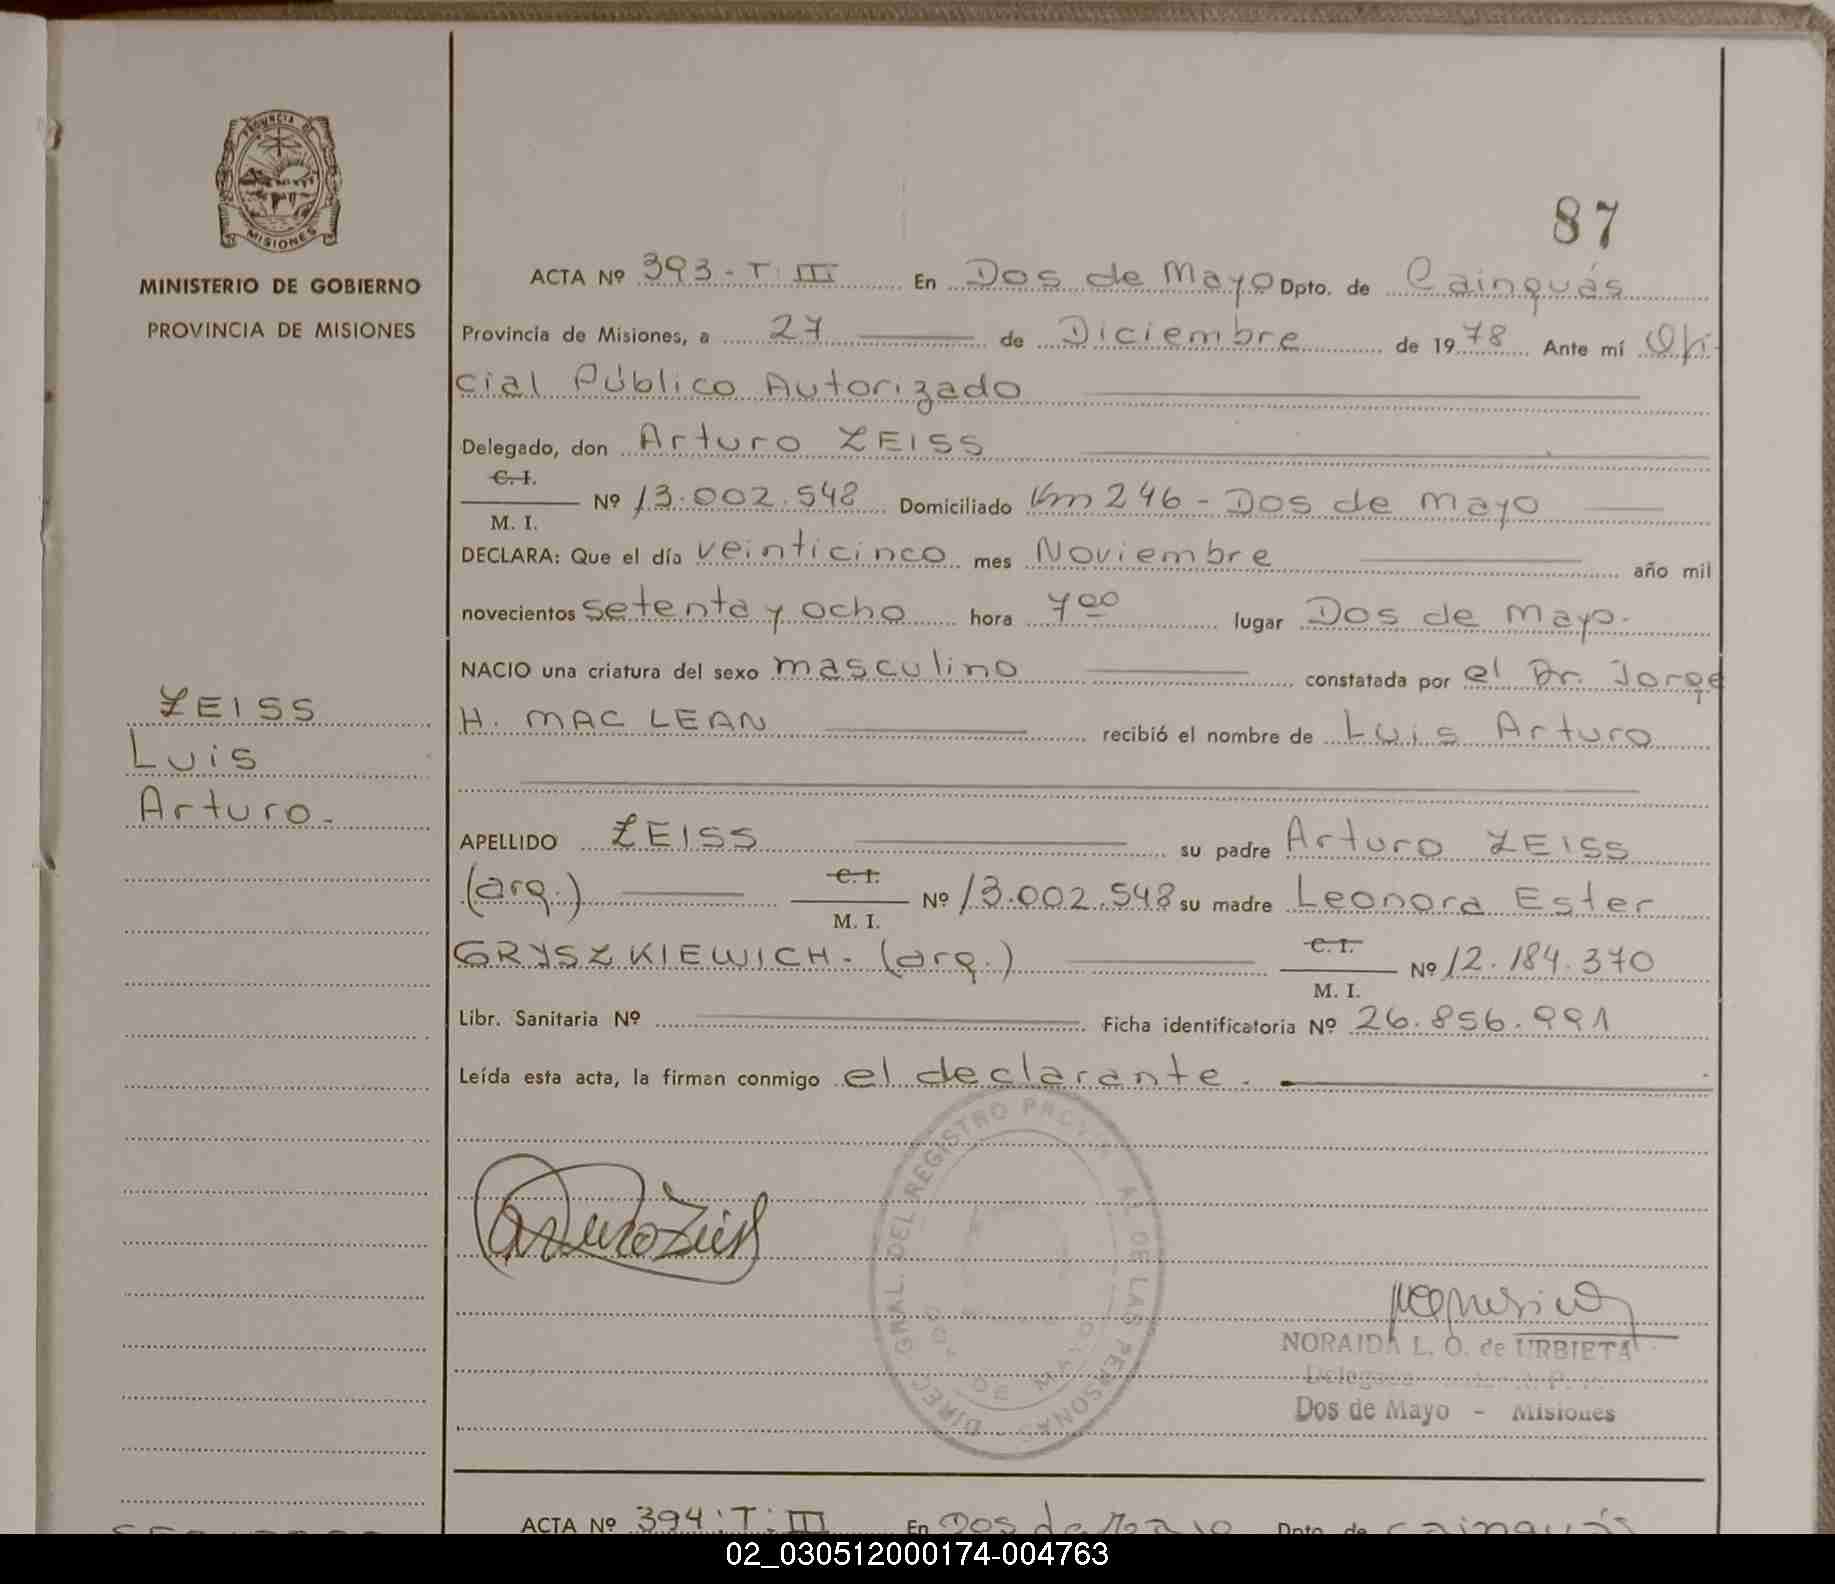 PROVINCIA DE
MISIONES
MINISTERIO DE GOBIERNO
PROVINCIA DE MISIONES
ZEISS
Luis
Arturo.
87
ACTA Nº 393-T:III En Dos de Mayo Dpto. de Cainguás
Provincia de Misiones, a 27 de Diciembre de 1978 Ante mí Ofi-
cial Público Autorizado
Delegado, don Arturo ZEISS
C. I.
M. I. Nº 13.002.548 Domiciliado Km 246 - Dos de Mayo
DECLARA: Que el día veinticinco mes Noviembre año mil
novecientos setenta y ocho hora 7 00 lugar Dos de Mayo.
NACIO una criatura del sexo masculino constatada por el Dr. Jorge
H. MAC LEAN recibió el nombre de Luis Arturo
APELLIDO ZEISS su padre Arturo ZEISS
(arg.) C. I. M. I. Nº 13.002.548 su madre Leonora Ester
GRYSZKIEWICH. (arg.) C. I. M. I. Nº 12.184.370
Libr. Sanitaria Nº Ficha identificatoria Nº 26.856.991
Leída esta acta, la firman conmigo el declarante.
Arturo Zeiss
DIREC. GRAL. DEL REGISTRO PROV. DE LAS PERSONAS
DOS DE MAYO
NORAIDA L. O. de URBIETA
Dos de Mayo - Misiones
ACTA Nº 394:T:III En Dos de Mayo Dpto. de Cainguás
02_030512000174-004763